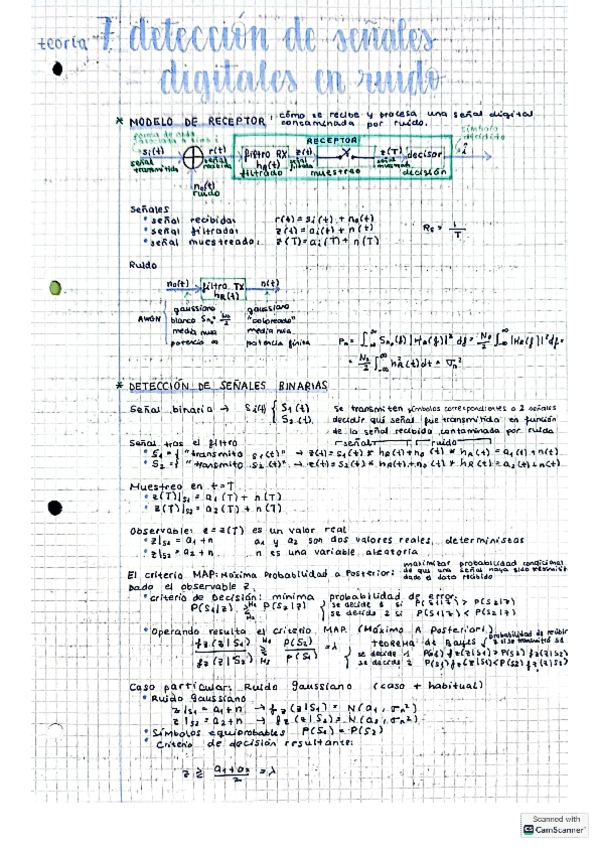 teoría 7 detección de señales
digitales en ruido
* MODELO DE RECEPTOR: cómo se recibe y procesa una señal digital
contaminada por ruido.
RECEPTOR
símbolo
decidido
si(t) r(t) filtro RX z(t) z(T) decisor
señal transmitida señal recibida hR(t) señal filtrada
filtrado muestreo decisión
n0(t)
ruido
Señales
• señal recibida: r(t) = si(t) + n0(t)
• señal filtrada: z(t) = ai(t) + n(t) Rs = 1/T
• señal muestreada: z(T) = ai(T) + n(T)
Ruido
n0(t) filtro TX n(t)
hR(t)
AWGN
gaussiano gaussiano
blanco Sn0 = N0/2 "coloreado"
media nula media nula
potencia ∞ potencia finita
Pn = ∫-∞^∞ Sn0(f) |HR(f)|² df = N0/2 ∫-∞^∞ |HR(f)|² df =
= N0/2 ∫-∞^∞ hR²(t) dt = σn²
* DETECCIÓN DE SEÑALES BINARIAS
Señal binaria → Si(t) { S1(t) S2(t)
Se transmiten símbolos correspondientes a 2 señales
decidir qué señal fue transmitida en función
de la señal recibida contaminada por ruido
Señal tras el filtro señal ruido
• S1 = { "transmito S1(t)" → z(t) = S1(t) * hR(t) + n0(t) * hR(t) = a1(t) + n(t)
• S2 = { "transmito S2(t)" → z(t) = S2(t) * hR(t) + n0(t) * hR(t) = a2(t) + n(t)
Muestreo en t=T
• z(T)|S1 = a1(T) + n(T)
• z(T)|S2 = a2(T) + n(T)
Observable: z = z(T) es un valor real
• z|S1 = a1 + n a1 y a2 son dos valores reales, deterministas
• z|S2 = a2 + n n es una variable aleatoria
El criterio MAP: Máxima Probabilidad a Posteriori: maximizar probabilidad condicional
de que una señal haya sido transmitida
dado el dato recibido
Dado el observable z,
• Criterio de Decisión: mínima probabilidad de error
P(S1|z) ≷ P(S2|z) { se decide 1 si P(S1|z) > P(S2|z)
se decide 2 si P(S1|z) < P(S2|z)
• Operando resulta el criterio MAP (Máximo A Posteriori)
probabilidad de recibir
z si se transmitió S1
teorema de Bayes
fz(z|S1) / fz(z|S2) ≷ P(S2) / P(S1) = λ
{ se decide 1 P(S1) fz(z|S1) > P(S2) fz(z|S2)
se decide 2 P(S1) fz(z|S1) < P(S2) fz(z|S2)
Caso particular: Ruido Gaussiano (caso + habitual)
• Ruido gaussiano
z|S1 = a1 + n → fz(z|S1) = N(a1, σn²)
z|S2 = a2 + n → fz(z|S2) = N(a2, σn²)
• Símbolos equiprobables P(S1) = P(S2)
• Criterio de decisión resultante:
z ≷ (a1 + a2)/2 = λ
Scanned with
CS CamScanner